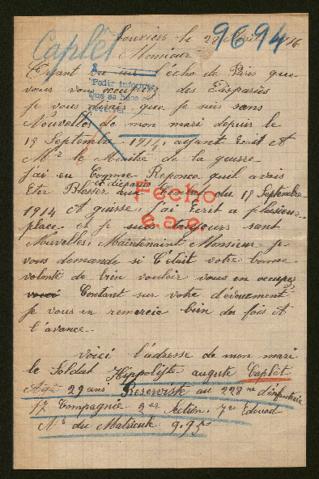 Louviers le 2
9694
16
Caplêt
Monsieur
l'écho de Paris que
vous vous occupez des Disparus
je vous dirais que je suis sans
Nouvelles de mon mari depuis le
19 Septembre 1914, ayant Ecrit A
Mr le Ministre de la guerre
j'ai eu Comme Réponce quil avais
Eter Blaser et disparus au Combat du 17 Septembre
1914 A j'ai Ecrit a plusieurs
place et je suis toujours sant
Nouvelles, Maintenaint Monsieur je
vous demande si C'était votre bonne
volonté de bien vouloir vous en occuper
Contant sur votre dévouement
je vous en remercie bien des fois A
l'avance.
Fecho
s.a.c.
Voici l'adresse de mon mari
le Soldat Hippolite auguste Caplêt
Agé 29 ans Reserviste au 228me d'infanterie
17 Compagnie 3er Section, 7er Escouad
No du Matricule 995